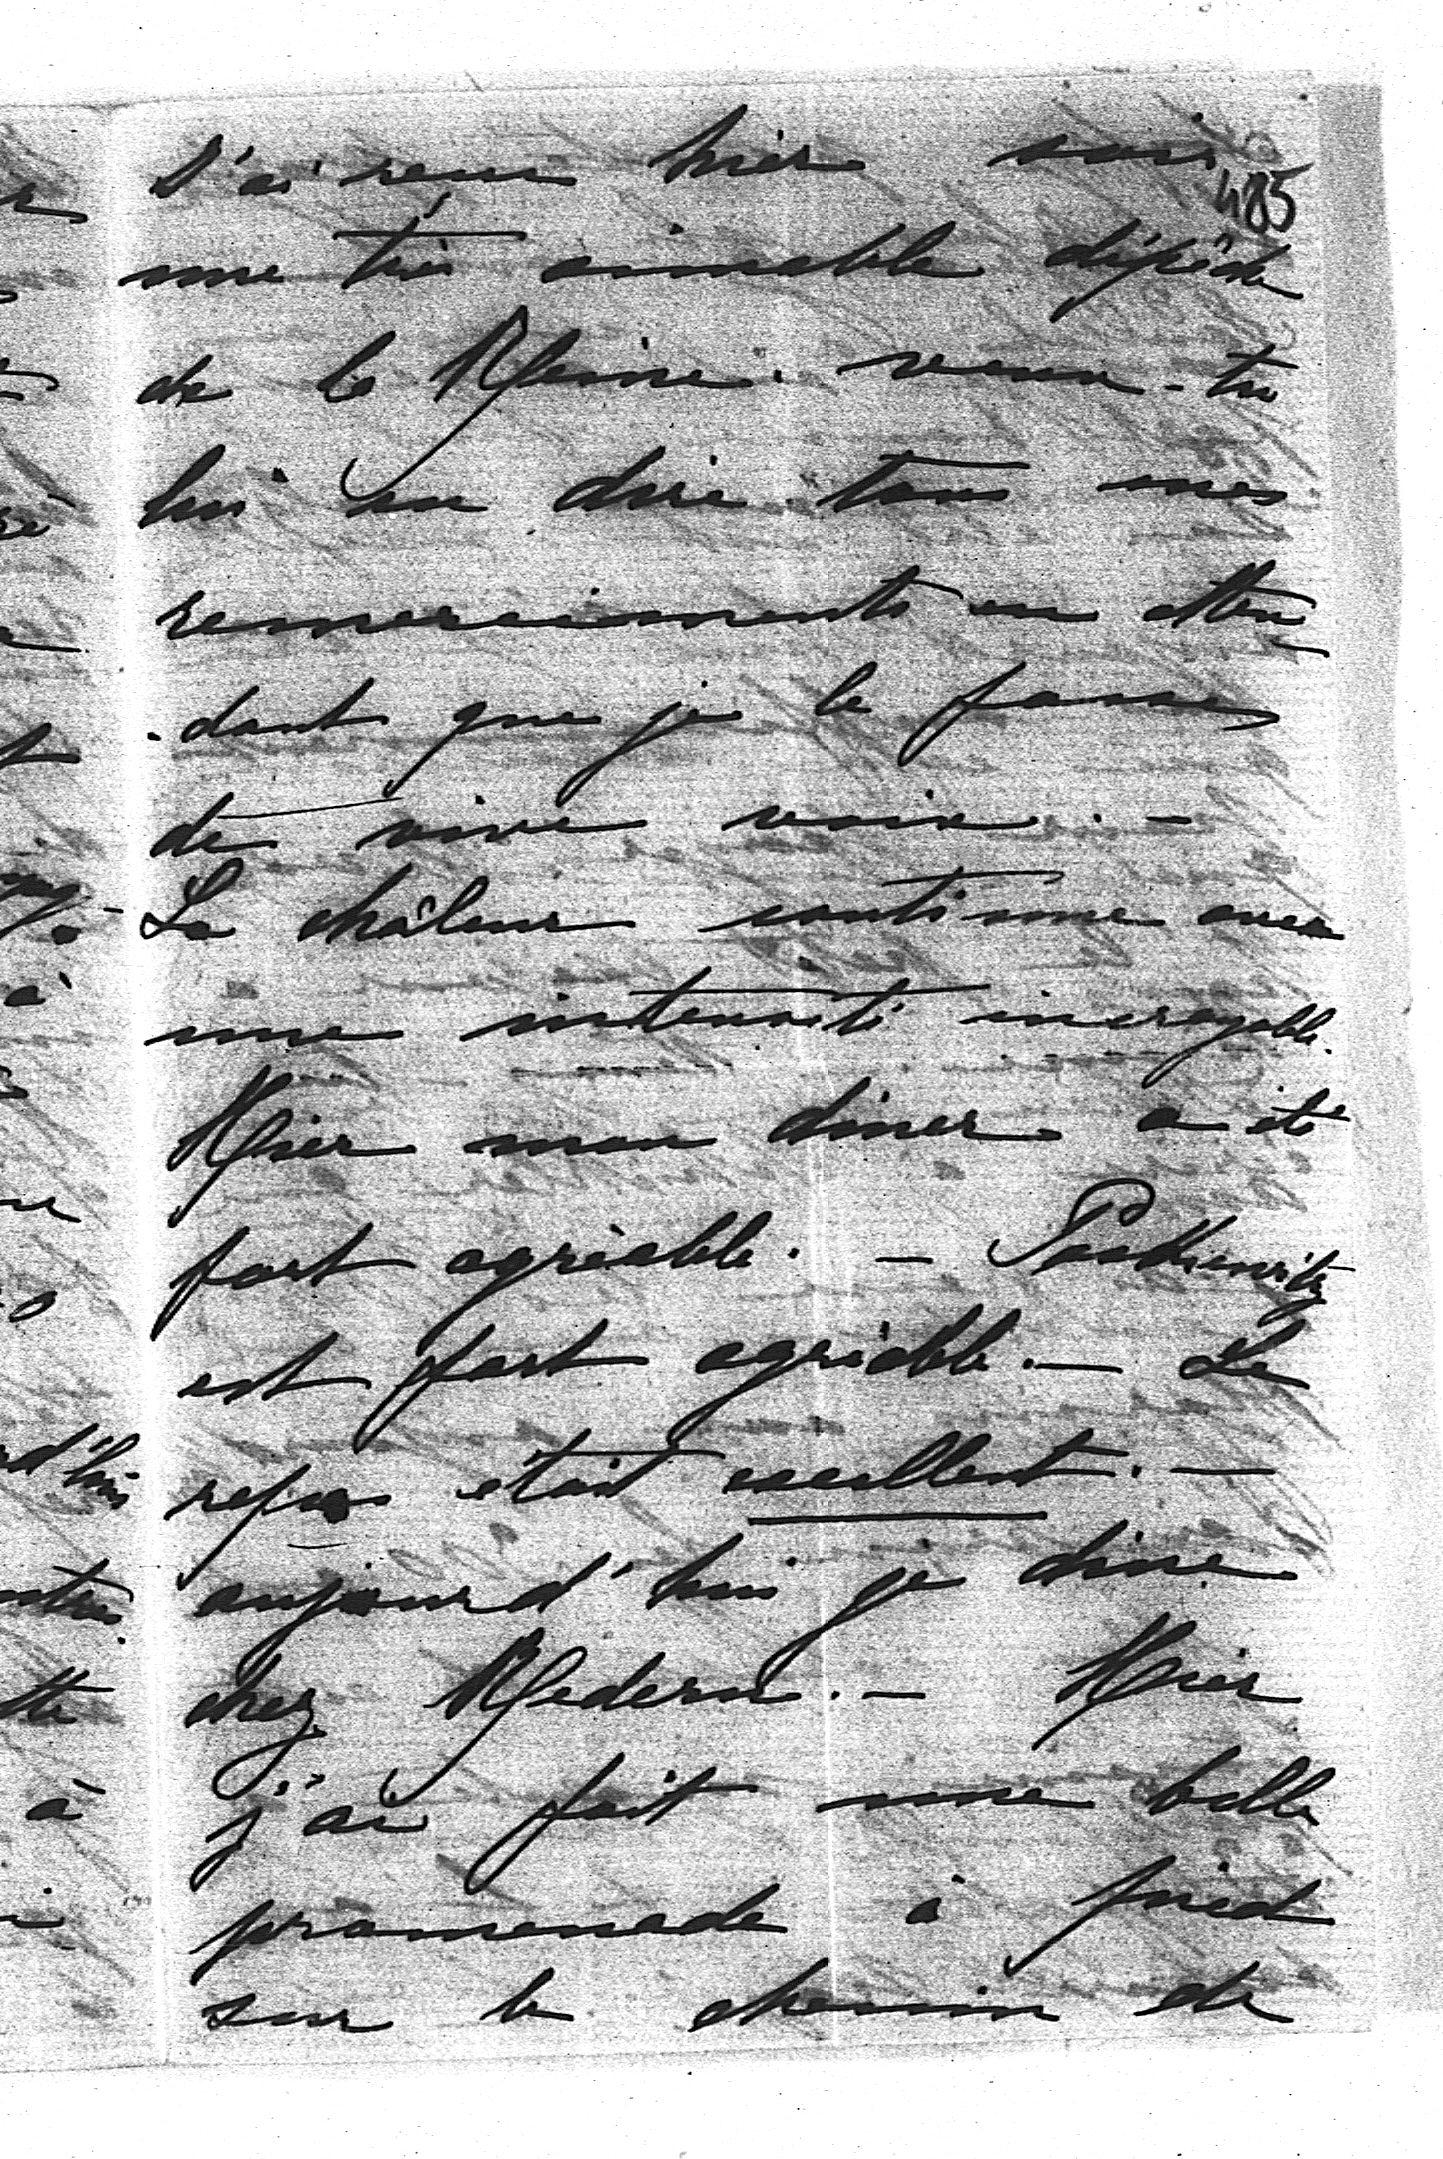 485
J'ai reçu hier soir
une très aimable dépêche
de la Reine. veux-tu
lui en dire tous mes
remerciements en atten
-dant que je le fasse
de vive voix. -
La châleur continue avec
une intensité incroyable.
Hier mon diner a été
fort agréable. - Paskiewitz
est fort agréable. - Le
repas était excellent. -
aujourd'hui je dine
chez Redern. - Hier
j'ai fait une belle
promenade à pied
sur le chemin de